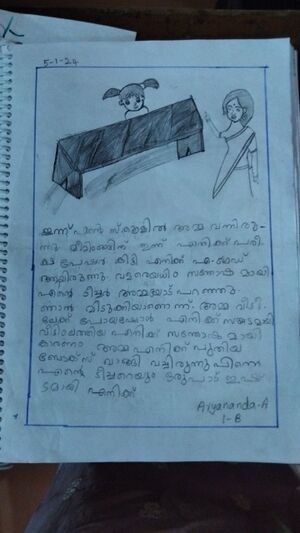 5-1-24
ഇന്ന് എൻ്റ സ്കൂളിൽ അമ്മ വന്നിരു-
ന്നു മീറ്റിങ്ങിന് ഇന്ന് എനിക്ക് പരി-
ക്ഷ പേപ്പർ കിട്ടി എനിക്ക് എ-ഗ്രേഡ്
ആയിരുന്നു. വളരെയധികം സന്തോഷ മായി
എന്റെ ടീച്ചർ അമ്മയോട് പറഞ്ഞു
ഞാൻ മിടുക്കിയാണെന്ന്. അമ്മ വീട്ടി-
ലേക്ക് പോയപ്പോൾ എനിക്ക് സങ്കടമായി
വീട്ടിലെത്തിയ എനിക്ക് സന്തോഷ മായി
കാരണം അമ്മ എനിക്ക് പുതിയ
ബോക്സ് വാങ്ങി വച്ചിരുന്നു പിന്നെ
എന്റെ ടീച്ചറെയും ഒരുപാട് ഇഷ്
ടമായി എനിക്ക്
Aryananda-A
1-B